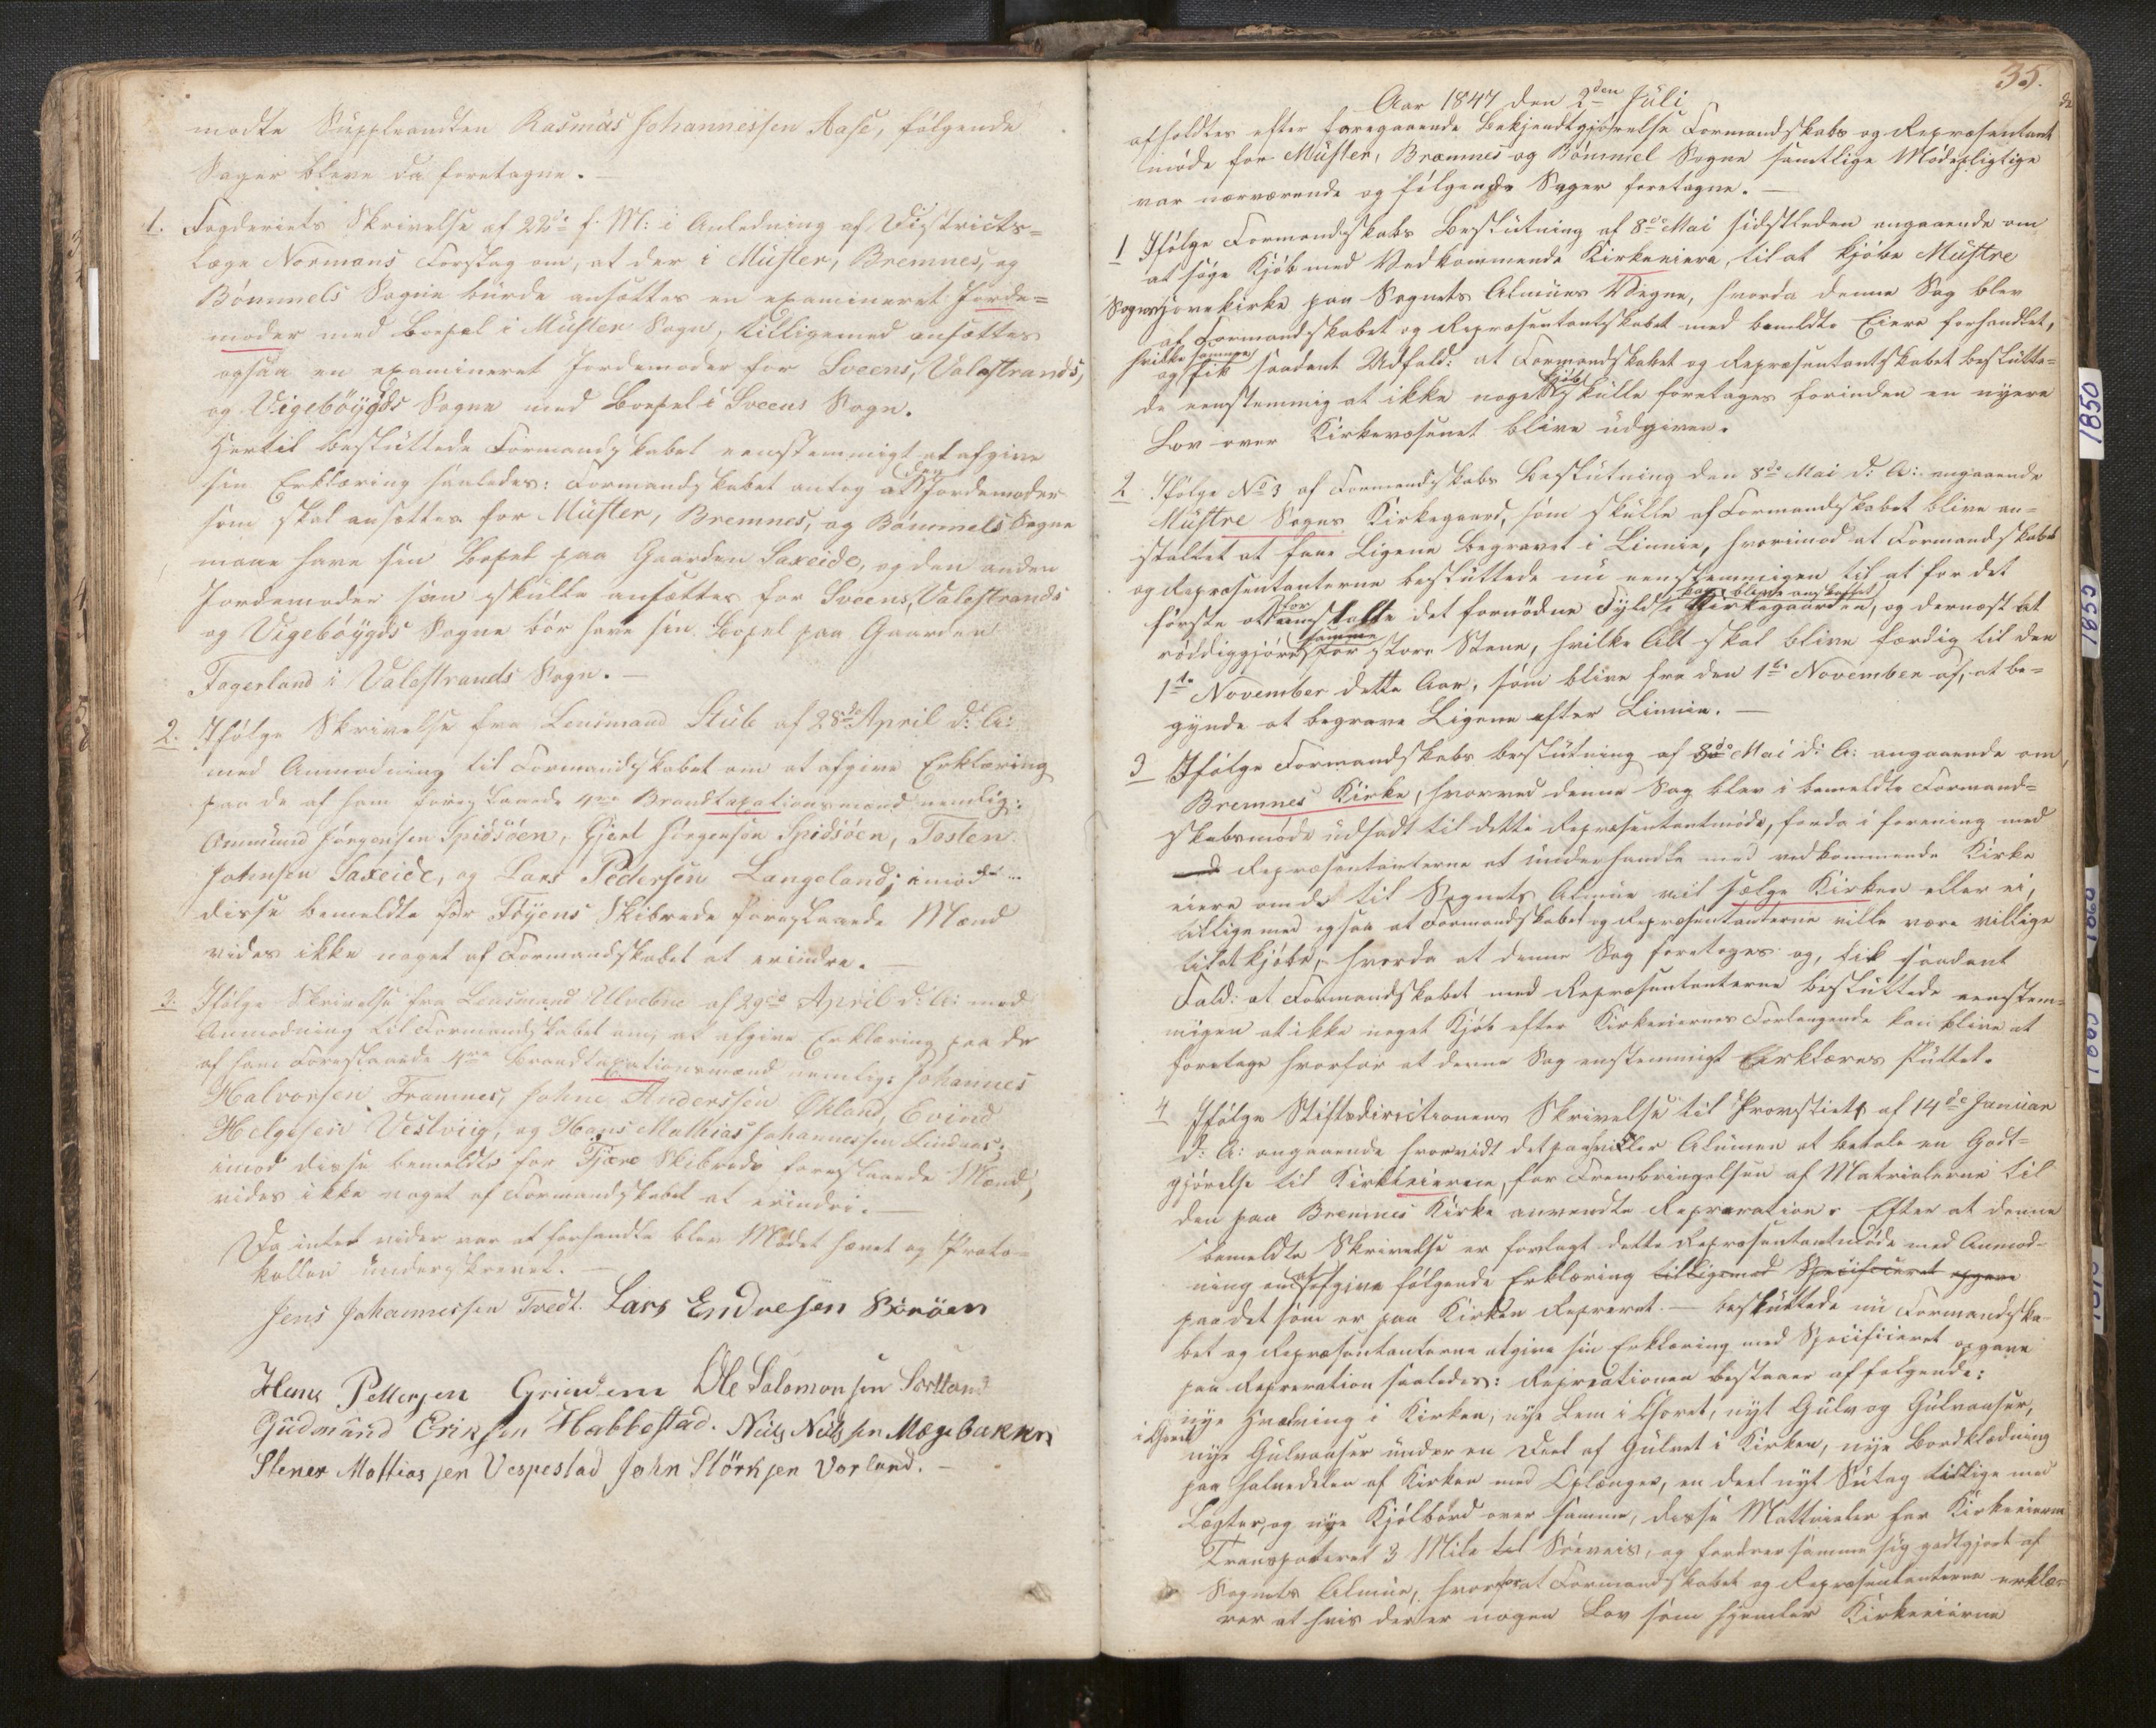 mødte Suppleandten Rasmus Johannessen Aase, følgende
Sager bleve da foretagne. —
1. Fogderiets Skrivelse af 22de f. M: i Anledning af Districts-
læge Normans Forslag om, at der i Muster, Bremnes, og
Bömmels Sogne burde ansættes en examineret Jorde-
moder med Boepel i Muster Sogn, tilligemed ansættes
ogsaa en examineret Jordemoder for Sveens, Valestrands,
og Vigebøygds Sogne med Boepel i Sveens Sogn.
Hertil besluttede Formandskabet eenstemmigt at afgive
sin Erklæring saaledes: Formandskabet antog at den Jordemoder
som skal ansættes for Muster, Bremnes, og Bømmels Sogne
maae have sin Bopel paa Gaarden Saxeide, og den anden
Jordemoder som skulle ansættes for Sveens, Valestrands
og Vigebøygds Sogne bør have sin Bopel paa Gaarden
Fagerland i Valestrands Sogn. —
2. Ifølge Skrivelse fra Lensmand Stub af 28de April d: A:
med Anmodning til Formandskabet om at afgive Erklæring
paa de af ham foreslaaede 4re Brandtaxationsmænd nemlig:
Ommund Jørgensen Spidsøen, Gjert Jørgensen Spidsøen, Tosten
Johnsen Saxeide, og Lars Pedersen Langeland; imod
disse bemeldte for Føyens Skibrede foreslaaede Mænd
vides ikke noget af Formandskabet at erindre. —
3. Ifølge Skrivelse fra Lensmand Ulvebne af 29de April d: A: med
Anmodning til Formandskabet om, at afgive Erklæring paa de
af ham Foreslaaede 4re Brandtaxationsmænd nemlig: Johannes
Halvorsen Tramnes, Johne Anderssen Økland, Evind
Helgesen Vestviig, og Hans Mathias Johannessen Lindaas;
imod disse bemeldte for Fjære Skibrede foreslaaede Mænd,
vides ikke noget af Formandskabet at erindre. —
Da intet vider var at forhandle blev Mødet hævet og Proto-
kollen underskrevet. —
Jens Johannessen Tvedt. Lars Endresen Sørøen
Hans Pettersen Grindem Ole Salomonsen Sortland
Gudmund Eriksen Habbestad. Niels Nielsen Mægebakken
Stener Mattiassen Vespestad John Störksen Vorland. —
35.
Aar 1847 den 2den Juli
afholdtes efter foregaaende Bekjendtgjørelse Formandskabs og Repræsentant
møde for Muster, Bræmnes og Bömmel Sogne samtlige Mødepligtige
var nærværende og følgende Sager foretagne. —
1 Ifølge Formandskabs Beslutning af 8de Mai sidstleden angaaende om
at søge Kjøb med Vedkommende Kirkeeiere, til at kjøbe Mustre
Sogns kirke paa Sognets Almues Vegne, hvorda denne Sag blev
af Formandskabet og Repræsentantskabet med bemeldte Eiere forhandlet,
hvilke samme
og fik saadant Udfald: at Formandskabet og Repræsentantskabet beslutte-
de eenstemmig at ikke noget Kjøb skulle foretages forinden en nyere
Lov over Kirkevæsenet blive udgiven.
2 Ifølge No 3 af Formandskabs Beslutning den 8de Mai d: A: angaaende
Mustre Sogns Kirkegaard, som skulle af Formandskabet blive an-
staltet at faae Ligene begravet i Linnie, hvorimod at Formandskabet
og Repræsentanterne besluttede nu eenstemmigen til at for det
første at for anstalte det fornødne Fyld i Kirkegaarden, kan blive anskaffet, og dernæst at
røddiggjøre samme for store Stene, hvilke Alt skal blive færdig til den
1te November dette Aar, som blive fra den 1te November af, at be-
gynde at begrave Ligene efter Linnie. —
3 Ifølge Formandskabs beslutning af 8de Mai d: A: angaaende om
Bremnes Kirke, hvorved denne Sag blev i bemeldte Formand-
skabsmøde udsadt til dette Repræsentantmøde, forda i forening med
Repræsentanterne at underhandle med vedkommende Kirke
eiere om de til Sognets Almue vil sælge Kirken eller ei,
tilligemed ogsaa at Formandskabet og Repræsentanterne ville være villige
til at kjøbe, hvorda at denne Sag foretoges og, fik saadant
Fald: at Formandskabet med Repræsentanterne besluttede eenstem-
migen at ikke noget Kjøb efter Kirkeeiernes Forlangende kan blive at
foretage hvorfor at denne Sag enstemmigt Erklæres sluttet.
4 Ifølge Stiftsdirictionens Skrivelse til Provstiets af 14de Januar
d: A: angaaende hvorvidt det paahviler Almuen at betale en Godt-
gjørelse til Kirkeeierene, for Frembringelsen af Matrialerne til
den paa Bremnes Kirke anvendte Repraration. Efter at denne
bemeldte Skrivelse er forlagt dette Repræsentantmøde med Anmod-
ning om at afgive følgende Erklæring tilligemed Specificeret opgave
paa det som er paa Kirken Repreret. — besluttede nu Formandska-
bet og Repræsentanterne atgive sin Erklæring med Specificeret opgave
paa Repreration saaledes: Reprerationen bestaaer af følgende:
nye Hvælving i Kirken, nye Lem i Choret, nyt Gulv og Gulvaaser,
i Choret
nye Gulvaaser under en Deel af Gulvet i Kirken, nye Bordklædning
paa halvedelen af Kirken med Oplænger, en deel nyt Sutag tillige med
Lægter, og nye Kjølbord over samme, disse Mattrialer har Kirkeeierne
Transpoteret 3 Mile til Søeveis, og fordrer samme sig godtgjort af
Sognets Almue, hvorfor at Formandskabet og Repræsentanterne erklæ-
rer at hvis der er nogen Lov som hjemler Kirkeeierne
1850
1855
1860
1865
1870